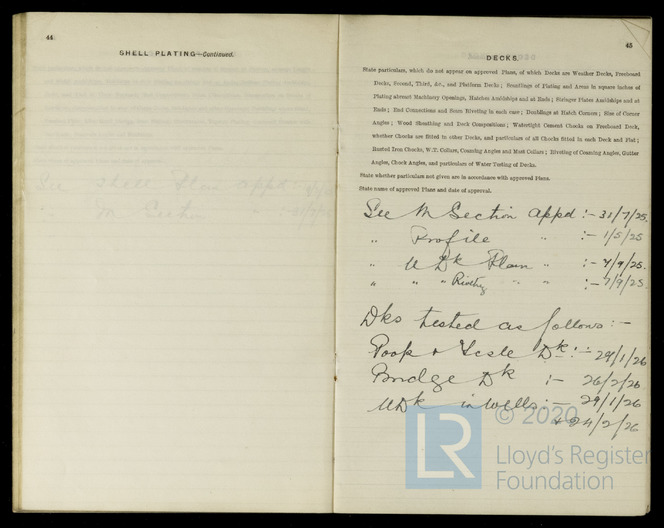 44
SHELL PLATING—Continued.
See Shell Plan appd
" M Section " :- 31/7/25
45
DECKS.
State particulars, which do not appear on approved Plans, of which Decks are Weather Decks, Freeboard
Decks, Second, Third, &c., and Platform Decks; Scantlings of Plating and Areas in square inches of
Plating abreast Machinery Openings, Hatches Amidships and at Ends; Stringer Plates Amidships and at
Ends; End Connections and Seam Riveting in each case; Doublings at Hatch Corners; Size of Corner
Angles; Wood Sheathing and Deck Compositions; Watertight Cement Chocks on Freeboard Deck,
whether Chocks are fitted in other Decks, and particulars of all Chocks fitted in each Deck and Flat;
Rusted Iron Chocks, W.T. Collars, Coaming Angles and Mast Collars; Riveting of Coaming Angles, Gutter
Angles, Chock Angles, and particulars of Water Testing of Decks.
State whether particulars not given are in accordance with approved Plans.
State name of approved Plans and date of approval.
See M Section appd :- 31/7/25.
" Profile " :- 1/5/25
" U Dk Plan " :- 7/9/25.
" " " Riveting " " :- 7/9/25.
Dks tested as follows :-
Poop & Fcsle Dk :- 29/1/26
Bridge Dk :- 26/2/26
U Dk in Wells :- 29/1/26
& 24/2/26
© 2020
LR
Lloyd's Register
Foundation